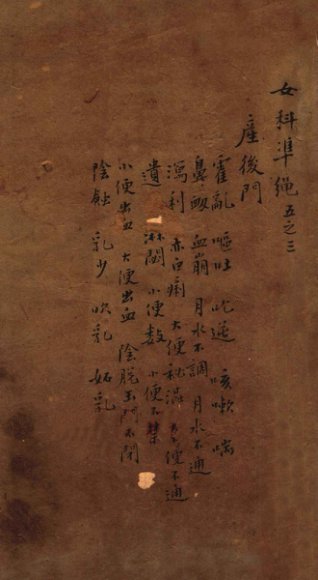 女科準繩 五之三
產後門
霍亂 嘔吐 呃逆 咳嗽 喘
鼻衄 血崩 月水不調 月水不通
瀉利 赤白痢 大便秘澁 大便不通
遺 淋閟 小便數 小便不禁
小便出血 大便出血 陰脫玉門不閉
陰蝕 乳少 吹乳 妬乳